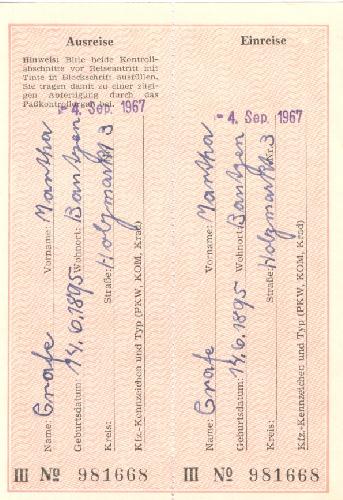 Ausreise
Hinweis: Bitte beide Kontroll-
abschnitte vor Reiseantritt mit
Tinte in Blockschrift ausfüllen.
Sie tragen damit zu einer zügi-
gen Abfertigung durch das
Paßkontrollorgan bei.
- 4. Sep. 1967
Name: Grafe Vorname: Martha
Geburtsdatum: 14.6.1895 Wohnort: Bautzen
Kreis: Straße: Holzmarkt 3
Kfz.-Kennzeichen und Typ (PKW, KOM, Krad)
III № 981668
Einreise
- 4. Sep. 1967
Name: Grafe Vorname: Martha
Geburtsdatum: 14.6.1895 Wohnort: Bautzen
Kreis: Straße: Holzmarkt Nr. 3
Kfz.-Kennzeichen und Typ (PKW, KOM, Krad)
III № 981668